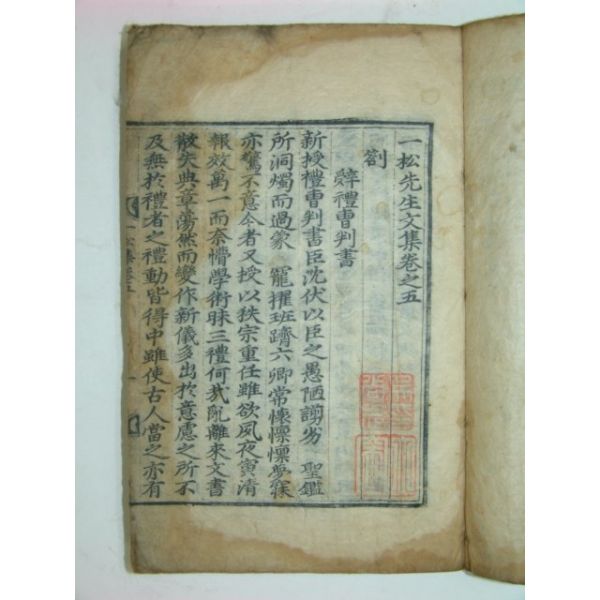 一松先生文集卷之五
劄
辭禮曹判書
新授禮曹判書臣沈伏以臣之愚陋謭劣 聖鑑
所洞燭而過蒙 寵擢班躋六卿常懷懍懍夢寐
亦驚不意今者又授以秩宗重任雖欲夙夜寅清
報效萬一而奈懵學術昧三禮何哉亂離來文書
散失典章蕩然而變作新儀多出於意慮之所不
及無於禮者之禮動皆得中雖使古人當之亦有
一松集卷五
一